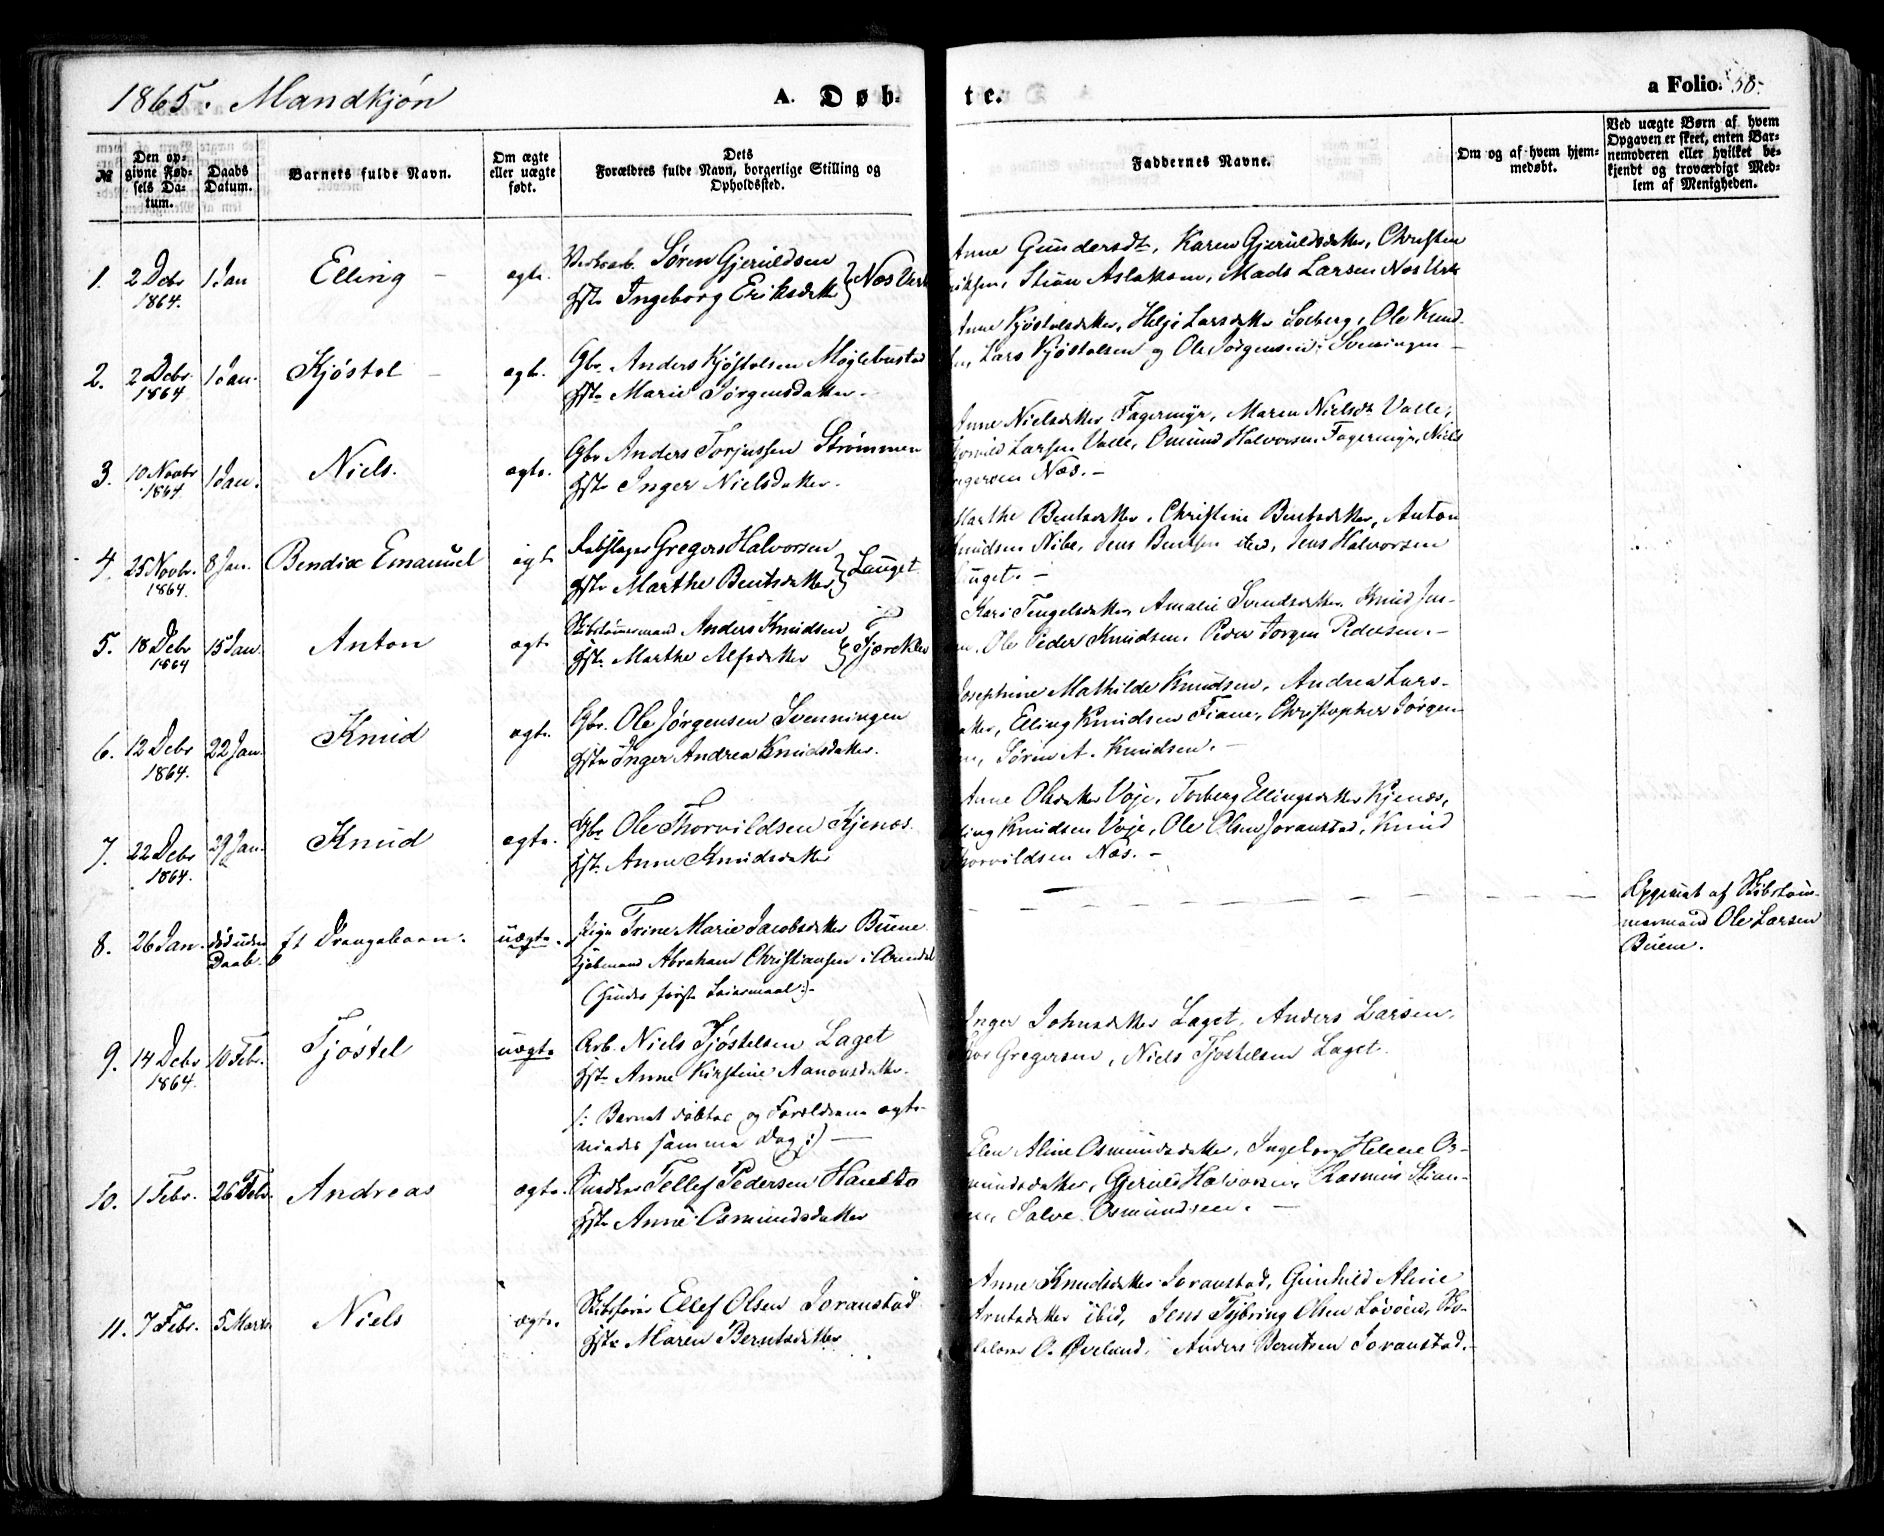 1865. Mandkjøn
A. Døb-
te.
a Folio. 58.
№
Den op-
givne Fød-
sels Da-
tum.
Daabs
Datum.
Barnets fulde Navn.
Om ægte
eller uægte
født.
Dets
Forældres fulde Navn, borgerlige Stilling og
Opholdssted.
Faddernes Navne.
Om og af hvem hjem-
medøbt.
Ved uægte Børn af hvem
Opgaven er skeet, enten Bar-
nemoderen eller hvilket be-
kjendt og troværdigt Med-
lem af Menigheden.
1. 2 Debr 1 Jan Elling – ægte. Søren Gjeruldsen
1864. Hst. Ingeborg Eriksdatter } Næs Verk
Anne Gundersdt, Karen Gjeruldsdatter, Christen
Eriksen, Stian Aslaksen, Mads Larsen Næs Verk
2. 2 Debr 1 Jan. Kjøstel – ægte. Gbr. Anders Kjøstelsen Møglebustad
1864 Hst. Marie Jørgensdatter.
Anne Kjøstelsdatter, Helje Larsdatter Solberg, Ole Knud-
sen, Lars Kjøstelsen og Ole Jørgensen Svenningen –
3. 10 Novbr 1 Jan. Niels. ægte. Gbr Anders Torjussen Strømmen
1864 Hst. Inger Nielsdatter.
Anne Nielsdatter Fagermyr, Maren Nielsdt Valle,
Larsen Valle, Omund Halvorsen Fagermyr, Niels
Næs. –
4. 25 Novbr. 8 Jan. Bendix Emanuel ægt. Rebslager Gregers Halvorsen
1864. Hst. Marthe Bentsdatter } Lauget
Marthe Bentsdatter, Christine Bentsdatter, Anton
Knudsen Nibe, Jens Bentsen ibid, Jens Halvorsen
Lauget. –
5. 18 Debr 15 Jan. Anton ægte Skibstømmermand Anders Knudsen
1864 Hst. Marthe Alfsdatter
Kari Tengelsdatter, Amalie Svendsdatter, Knud Jen-
sen, Ole Peder Knudsen, Peder Jørgen Pedersen. –
6. 12 Debr 22 Jan. Knud ægte. Gbr. Ole Jørgensen Svenningen
1864. Hst. Inger Andrea Knudsdatter.
Josephine Mathilde Knudsen, Andrea Lars-
datter, Elling Knudsen Fiane, Christopher Jørgen-
sen, Søren A. Knudsen. –
7. 22 Debr 29 Jan. Knud ægte. Gbr. Ole Thorvildsen Kjenæs.
1864. Hst. Anne Knudsdatter
Anne Olsdatter Voje, Torberg Ellingsdatter Kjenæs,
Elling Knudsen Voje, Ole Olsen Joranstad, Knud
Thorvildsen Næs. –
8. 26 Jan. død uden Daab. et Drengebarn. uægte. Pige Trine Marie Jacobsdatter Buene
Kjøbmand Abraham Christiansen i Arendal
(hendes første Leiermaal:)
Opgivet af Skibstøm-
mermand Ole Larsen
Buene.
9. 14 Debr 10 Febr. Tjøstel uægte Arb. Niels Tjøstelsen Laget
1864. Hst. Anne Kirstine Aanonsdatter.
/: Barnet døbtes og Forældrene ægte-
viedes samme Dag :/ –
Inger Johnsdatter Laget, Anders Larsen,
Gregersen, Niels Tjøstelsen Laget.
10. 1 Febr. 26 Febr. Andreas ægte. Tellef Pedersen
Hst. Anne Osmundsdatter
Elen Aline Osmundsdatter, Ingeborg Helene Os-
mundsdatter, Gjeruld Halvorsen, Rasmus Stian-
sen, Salve Osmundsen. –
11. 7 Febr. 5 Marts Niels ægte. Skibsfører Ellef Olsen Joranstad
Hst. Maren Berntsdatter
Anne Knudsdatter Joranstad, Gunhild Aline
Arntsdatter ibid, Jens Tybring Olsen Løvøen, Sko-
lelærer O. Øveland, Anders Berntsen Joranstad. –